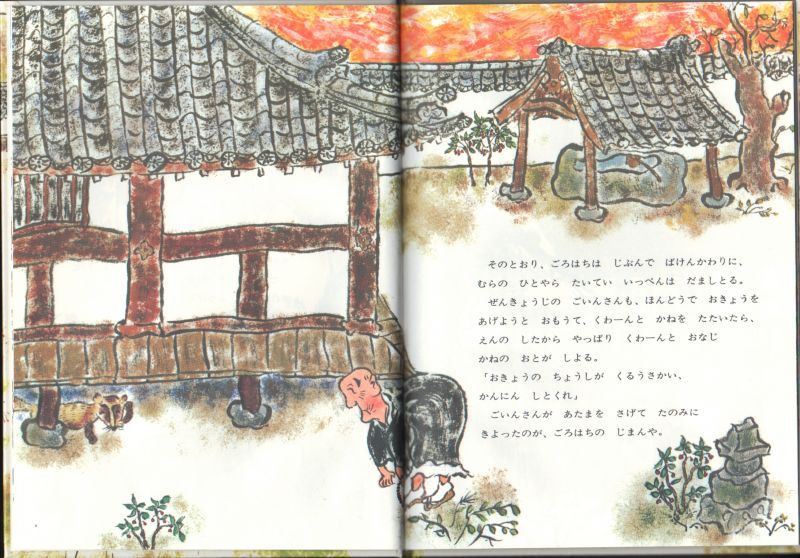 そのとおり、ごろはちは　じぶんで　ばけんかわりに、
むらの　ひとやら　たいてい　いっぺんは　だましとる。
ぜんきょうじの　ごいんさんも、ほんどうで　おきょうを
あげようと　おもうて、くわーんと　かねを　たたいたら、
えんの　したから　やっぱり　くわーんと　おなじ
かねの　おとが　しよる。
「おきょうの　ちょうしが　くるうさかい、
かんにん　しとくれ」
ごいんさんが　あたまを　さげて　たのみに
きよったのが、ごろはちの　じまんや。